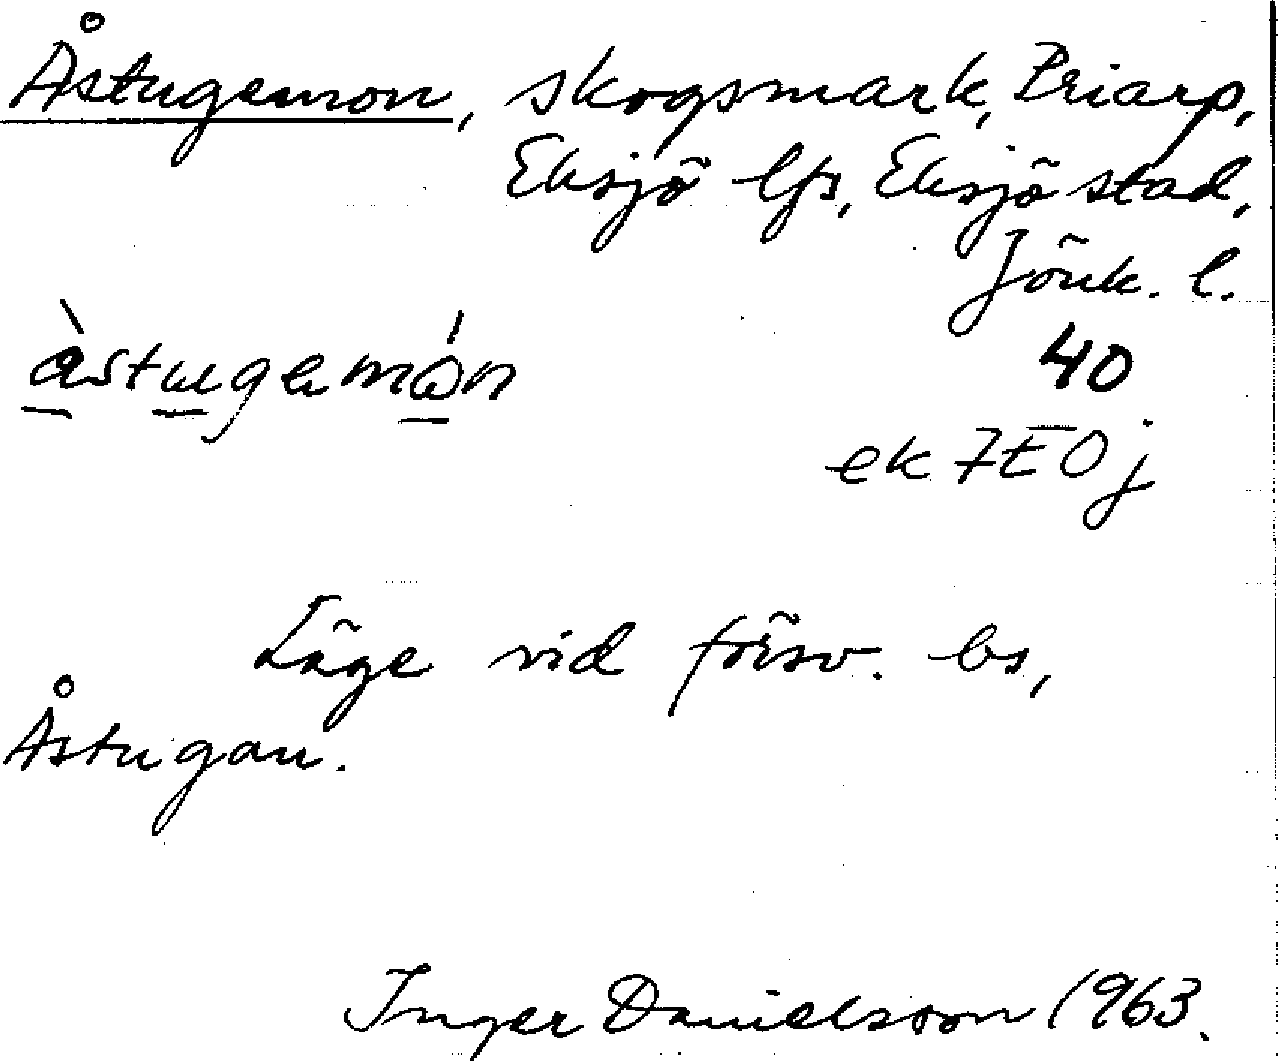 Åstugemon, skogsmark, Priarp,
Eksjö lfs, Eksjö stad,
Jönk. l.
àstugemón
40
ek 7E0j
Läge vid försv. bs,
Åstugan.
Inger Danielsson 1963.